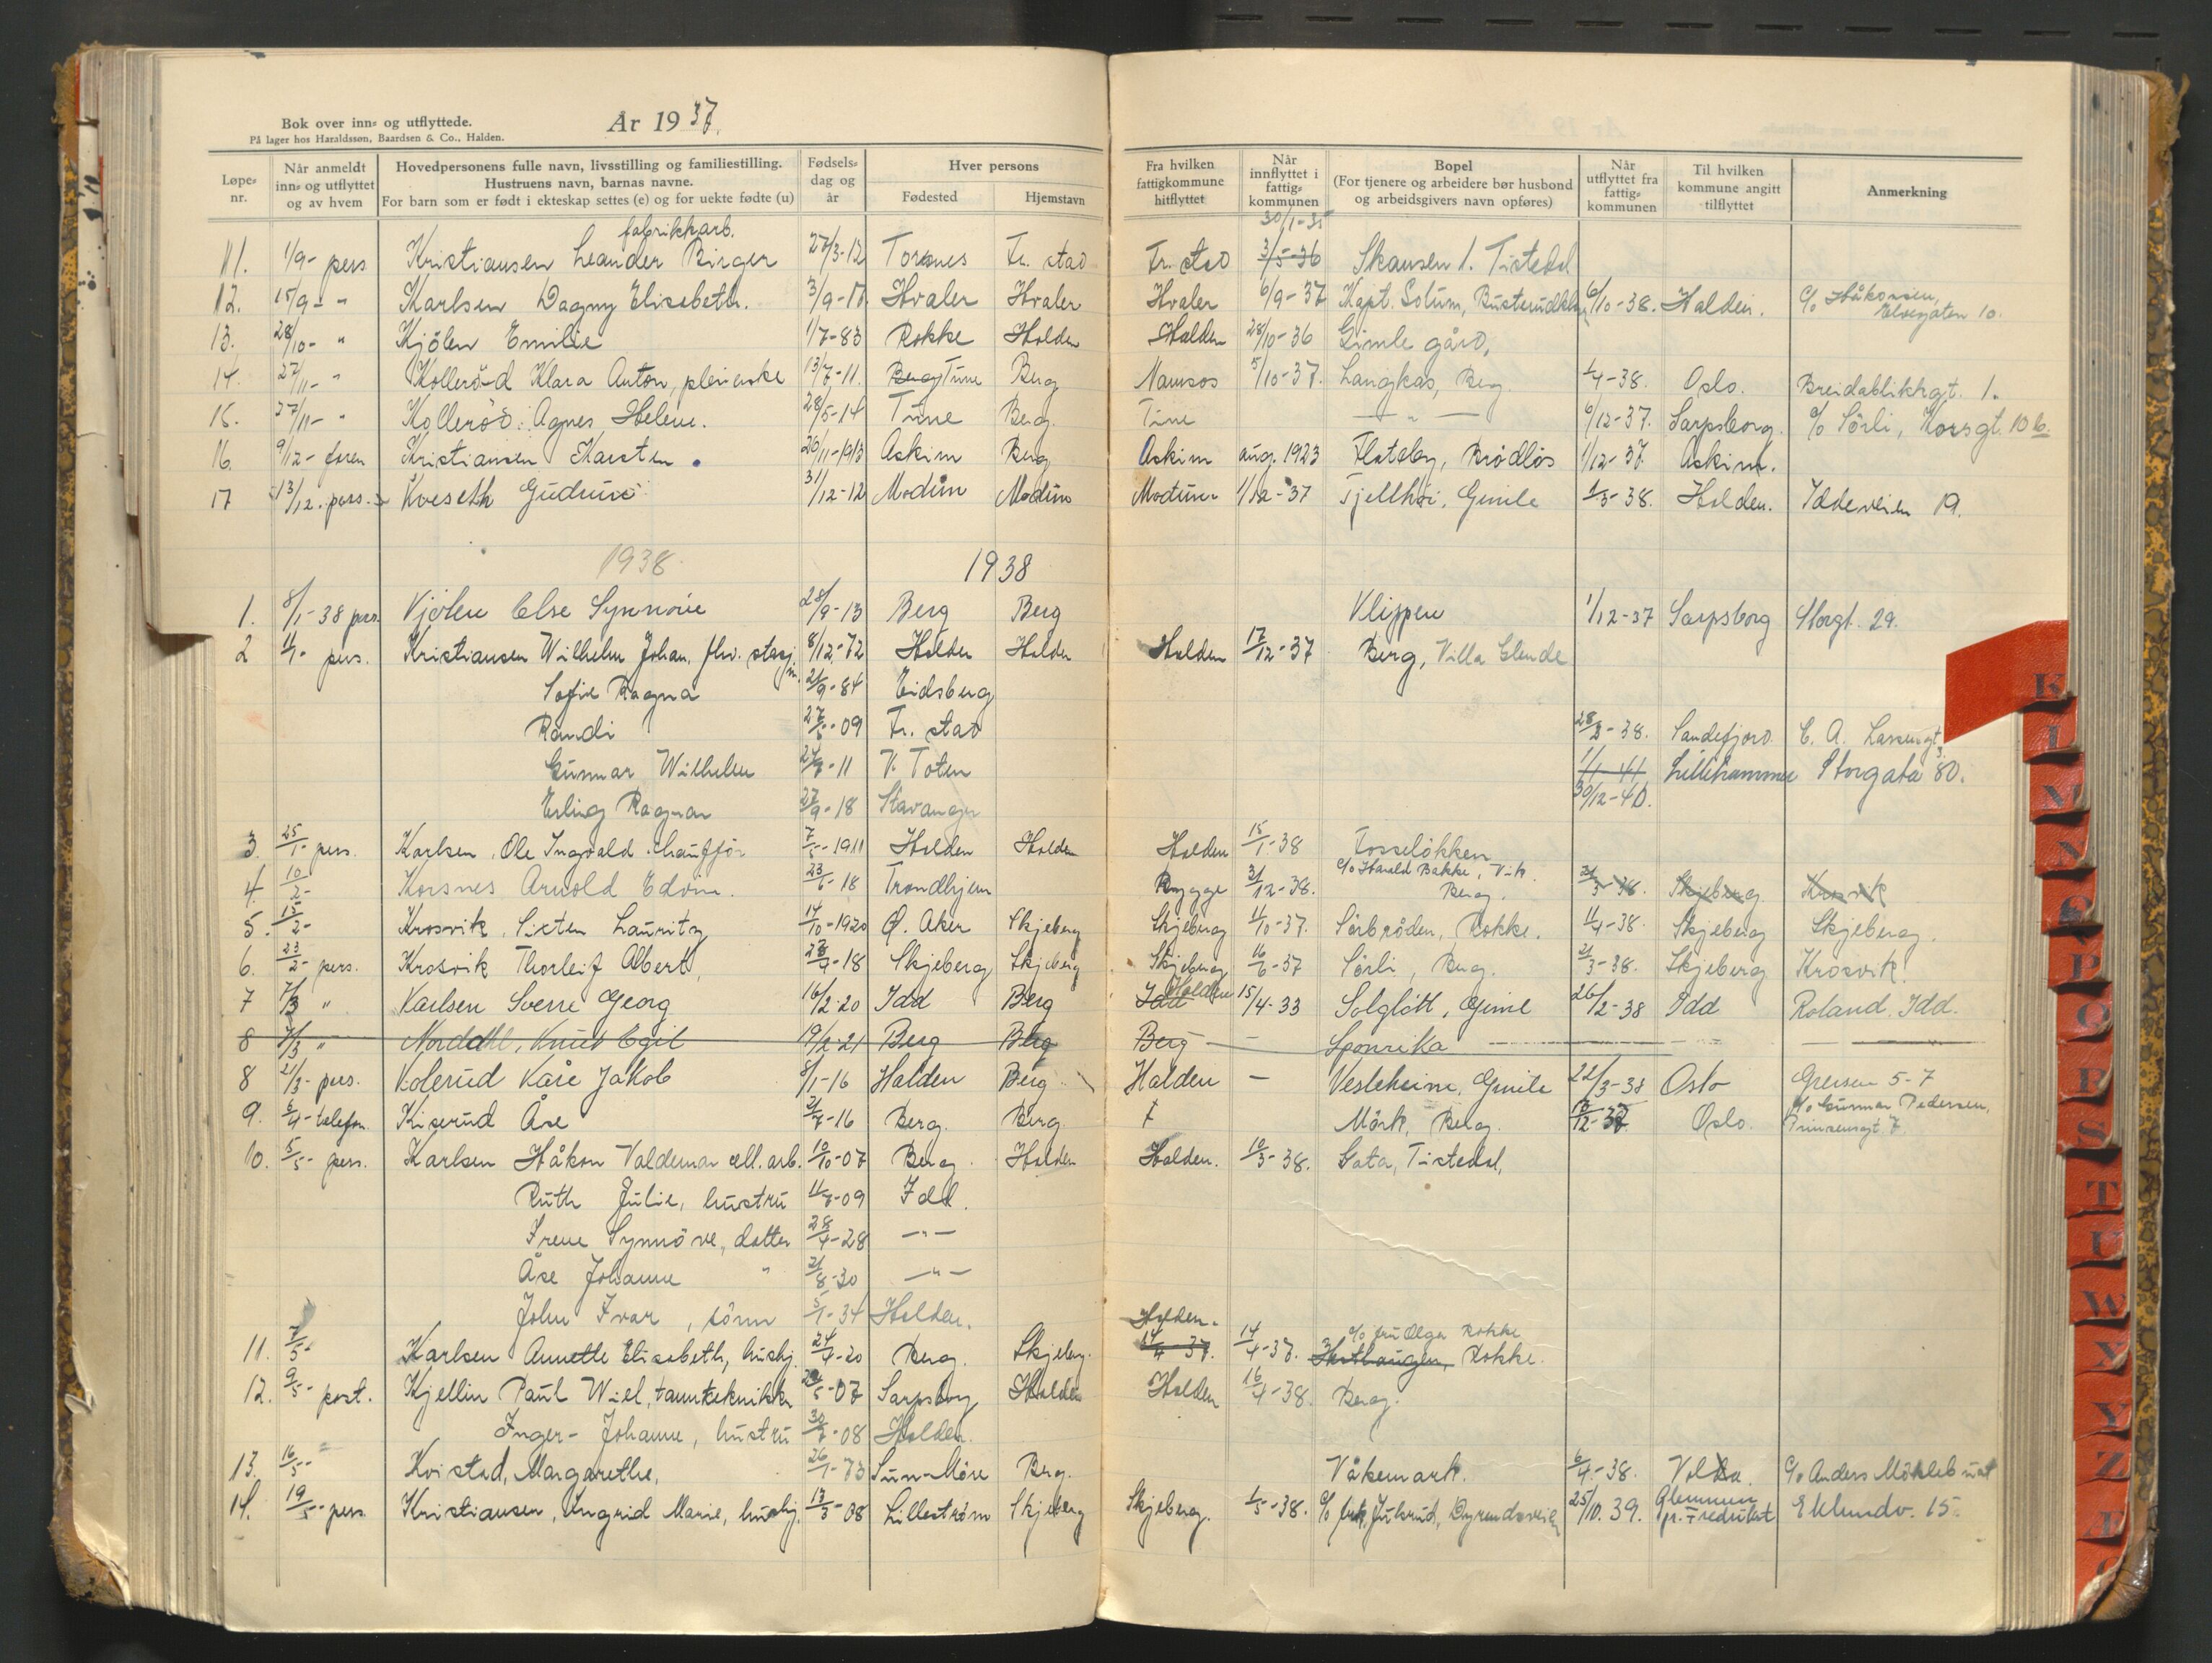 Bok over inn- og utflyttede.
På lager hos Haraldssøn, Baardsen & Co., Halden.
År 1937.
Løpe-nr. Når anmeldt inn- og utflyttet og av hvem Hovedpersonens fulle navn, livsstilling og familiestilling. Hustruens navn, barnas navne. For barn som er født i ekteskap settes (e) og for uekte fødte (u) Fødsels-dag og år Hver persons Fødested Hjemstavn Fra hvilken fattigkommune hitflyttet Når innflyttet i fattig-kommunen Bopel (For tjenere og arbeidere bør husbond og arbeidsgivers navn opføres) Når utflyttet fra fattig-kommunen Til hvilken kommune angitt tilflyttet Anmerkning
fabrikkarb. 30/1-35
11. 1/9- pers Kristiansen Leander Birger 27/3-12 Torsnes Fr. stad Fr. stad 3/5-36 Skansen 1. Tistedal
12. 15/9- " Karlsen Dagny Elisabeth. 3/9-17 Hvaler Hvaler Hvaler 6/9-37 Kapt. Solum, 6/10-38. Halden. c/o Håkonsen, Elvegaten 10.
13. 28/10- " Kjölen Emilie 1/7-83 Rokke Halden Halden 28/10-36 Gimle gård,
14. 27/11- " Kolleröd Klara Anton, 13/7-11. Berg Tune Berg Namsos 5/10-37. Langkås, Berg. 1/4-38. Oslo. Breidablikkgt. 1.
15. 27/11- " Kolleröd. Agnes Helene. 28/5-14 Tune Berg. Tune — " — 6/12-37. Sarpsborg. c/o Sörli, Korsgt. 10 b.
16. 9/12- foren Kristiansen Karsten. 20/11-1913 Askim Berg Askim aug. 1923 Flateby, Brödlös 1/12-37 Askim.
17 13/12. pers. Kveseth Gudrun 31/12-12 Modum Modum Modum 1/12-37 Fjellhöi, Gimle 1/3-38. Halden. Iddeveien 19.
1938 1938
1. 8/1-38 pers. Kjölen Else Synnöve 28/9-13 Berg Berg Klippen 1/12-37 Sarpsborg Storgt. 29.
2 11/1- pers. Kristiansen Wilhelm Johan. fhv. stasj.m. 8/12-72 Halden Halden Halden 17/12-37 Berg, Villa Elende
Sofie Ragna 21/9-84 Eidsberg
Randi 27/6-09 Fr. stad 28/2-38. Sandefjord.
Gunnar Wilhelm 27/7-11 V. Toten 1/1-41 Lillehammer Storgata 80.
30/12-40.
Erling Ragnar 27/9-18 Stavanger
3. 25/1- pers. Karlsen, Ole Ingvald chauffør 7/5-1911 Halden Halden Halden 15/1-38 Fosseløkken
4. 10/2- Korsnes Arnold Edvin. 23/6-18 Trondhjem Rygge 31/12-38. c/o Harald Bakke, Vik Berg. 31/3-38. Skjeberg Krosvik
5. 15/2- Krosvik, Sixten Lauritz 14/10-1920 Ø. Aker Skjeberg Skjeberg 11/10-37. Sörbröden, Rokke. 11/4-38. Skjeberg Skjeberg.
6. 23/2- pers. Krosvik Thorleif Albert, 28/4-18 Skjeberg Skjeberg Skjeberg 16/6-37 Sörli, Berg. 31/3-38. Skjeberg Krosvik.
7 7/3 " Karlsen Sverre Georg 16/2-20 Idd Berg Idd Halden 15/4-33 Solgløtt, Gimle 26/2-38 Idd Roland, Idd.
8 7/3 " Norddahl, Knut Egil 19/2-21 Berg Berg Berg — Sponvika
8 21/3- pers. Kolerud Kåre Jakob 8/1-16 Halden Berg Halden — Vesleheim, Gimle 22/3-38 Oslo Grensen 5-7
9. 6/4- telefon. Kiserud Åse 21/7-16 Berg. Berg. Mörk, Berg. 18/12-37. Oslo. c/o Gunnar Pedersen, Prinsensgt. 7.
10. 5/5- pers. Karlsen Håkon Valdemar cell. arb. 10/10-07 Berg. Halden Halden. 10/3-38. Gata, Tistedal,
Ruth Julie, hustru 11/8-09 Idd.
Irene Synnöve, datter 28/4-28 — " —
Åse Johanne " 21/8-30 — " —
John Ivar, sönn 5/1-34 Halden.
11. 7/5- Karlsen Annette Elisabeth, hushj. 24/4-20 Berg. Skjeberg. Halden. 14/4 37. 14/4-37. c/o fru Olga Rokke Rokke.
12. 9/5- post. Kjellin Paul Wiel, tanntekniker 28/5-07 Sarpsborg Halden Halden 16/4-38. Berg.
Inger-Johanne, hustru 30/7-08 Halden.
13. 16/5- Kvistad, Margarethe, 26/1-73 Sunn-Möre Berg. Våkemark. 6/4-38. Volda. c/o Anders
14. 19/5- pers. Kristiansen, Ingrid Marie, hushj. 13/3-08 Lilleström Skjeberg Skjeberg. 1/5-38. c/o 25/10.39. Glemmen pr. Fredrikst Eklundv. 15.
K
P
R
S
T
U
W
X
Y
Z